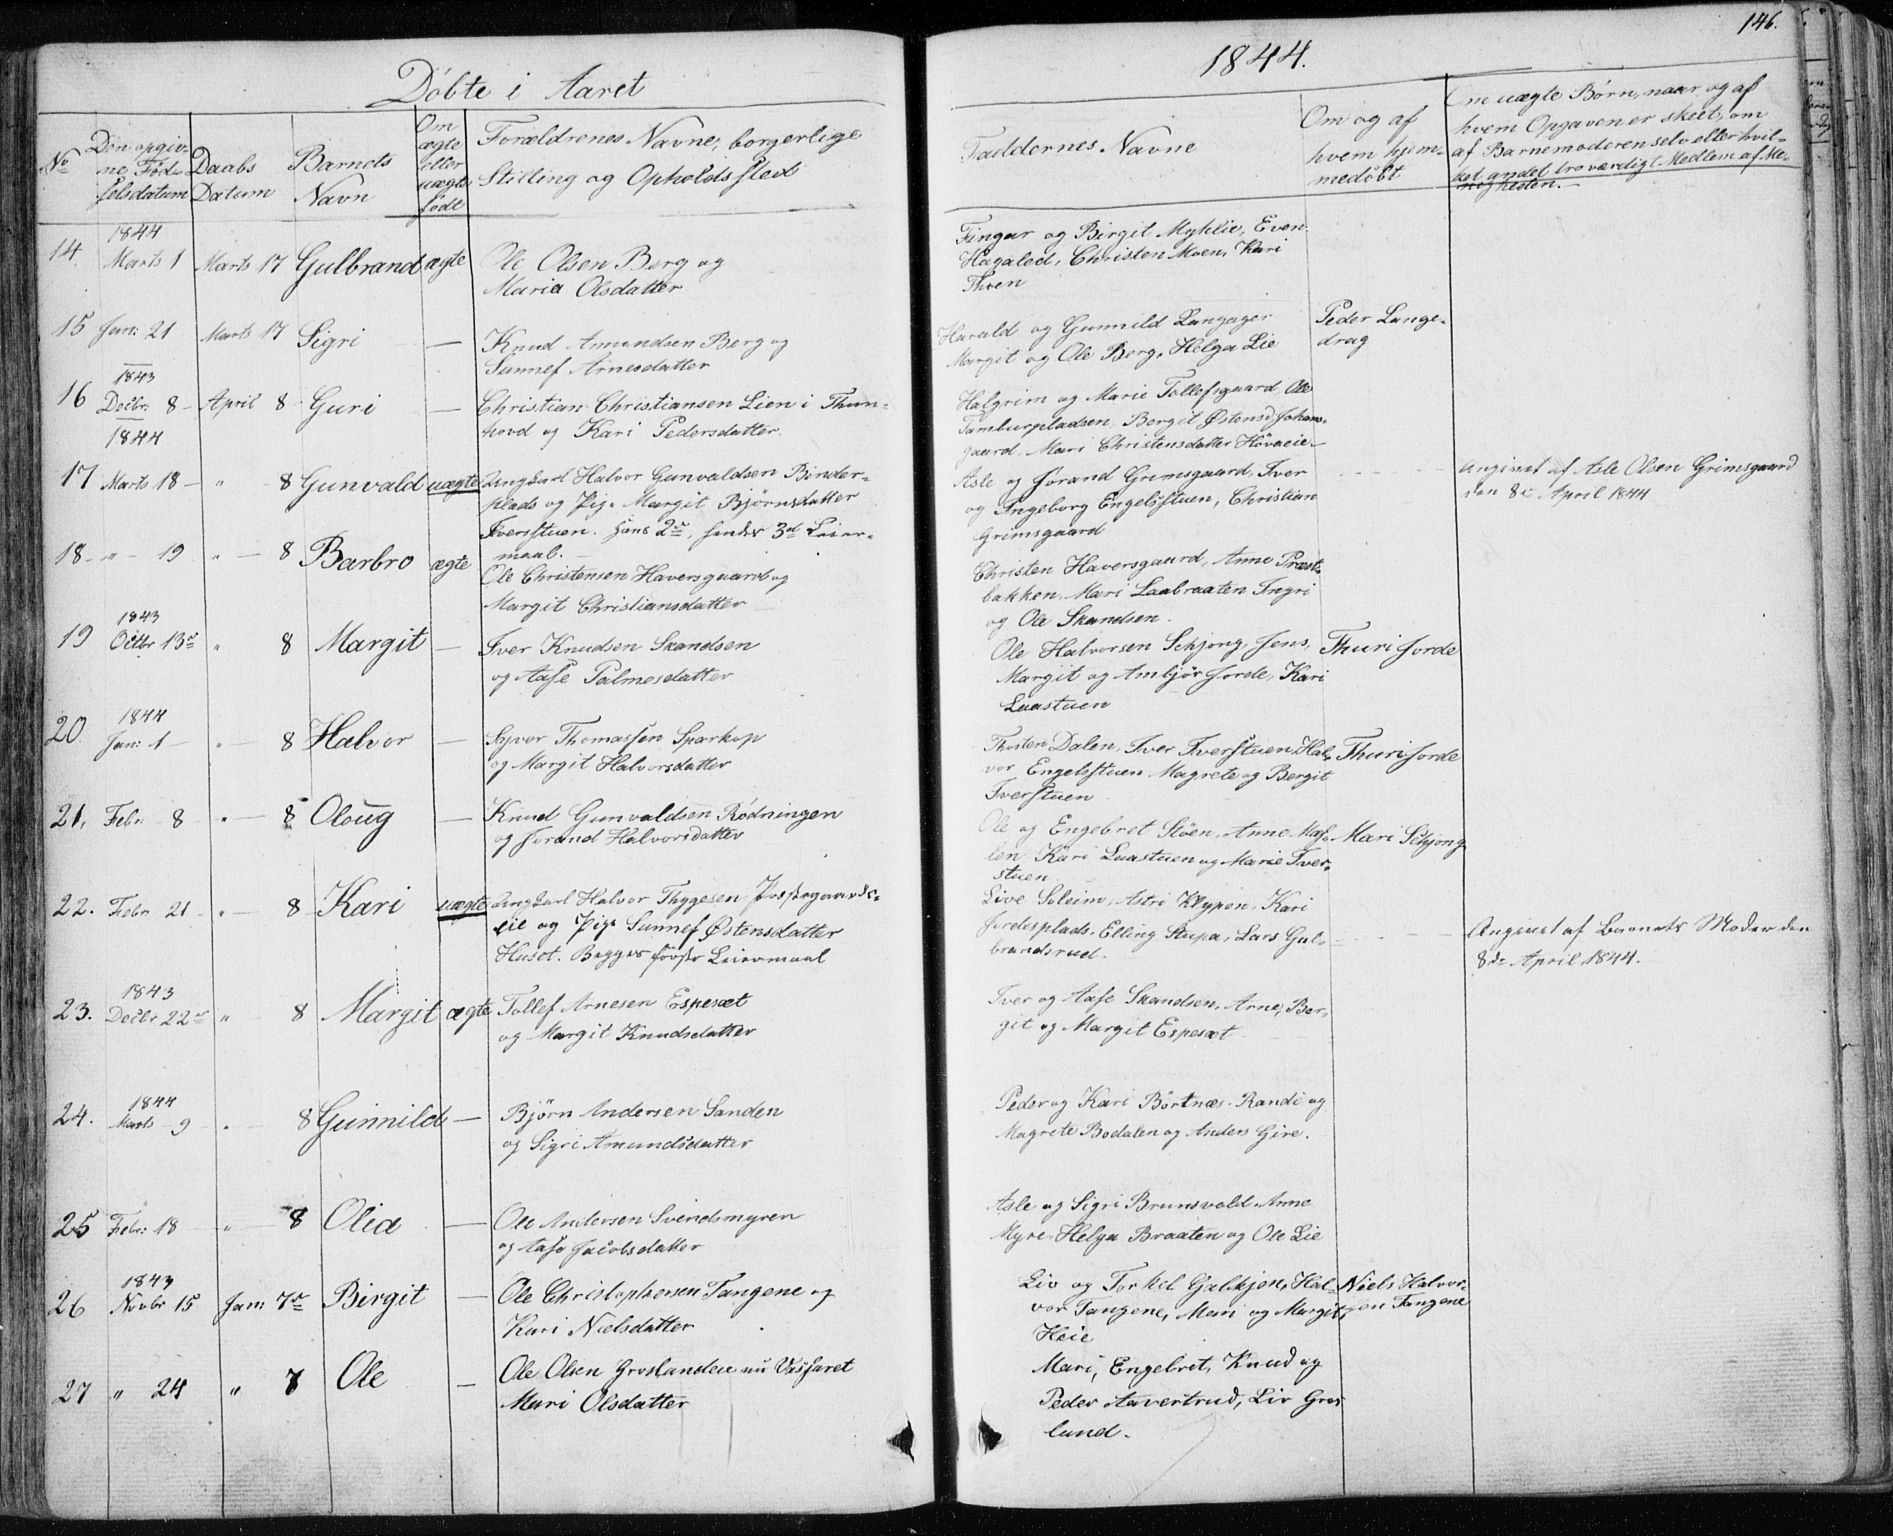 146.
Døbte i Aaret
1844.
No
Den opgiv-
ne Fød-
selsdatum
Daabs
Datum
Barnets
Navn
Om
ægte
eller
uægte
født
Forældrenes Navne, borgerlige
Stilling og Opholdssted
Faddernes Navne
Om og af
hvem hjem-
medøbt
Om uægte Børn, naar og af
hvem Opgaven er skeet, om
af Barnemoderen selv eller hvil-
ket andet troværdigt Medlem af Me-
nigheden.
14. 1844 Marts 1 Marts 17 Gulbrand ægte
Ole Olsen Berg og
Maria Olsdatter
Fingar og Birgit Myhlie, Even
Hagaled, Christen Moen, Kari
Thoen
15 Jan: 21 Marts 17 Sigri —
Knud Amundsen Berg og
Sunnef Arnesdatter
Harald og Gunnild Langager
Margit og Ole Berg, Helga Lie
Peder Lange-
drag
16 1843 Decbr. 8 April 8 Guri —
Christian Christiansen Lien i Thun-
hovd og Kari Pedersdatter.
Halgrim og Marie Tollefsgaard, Ole
Tamburpladsen, Bergit Østensd. Johans-
gaard, Mari Christensdatter Høvaeie
17 1844 Marts 18 " 8 Gunvald uægte
Ungkarl Halvor Gunvaldsen Binder-
plads og Pige Margit Bjørnsdatter
Iverstuen. Hans 2de, hendes 3die Leier-
maal.
Asle og Jorand Grimsgaard, Iver
og Ingeborg Engelstuen, Christian
Grimsgaard
Angivet af Asle Olsen Grimsgaard
den 8de April 1844
18 " 19 " 8 Barbro ægte
Ole Christensen Haversgaard og
Margit Christiansdatter
Christen Haversgaard, Anne Præst-
bakken, Mari Laabraaten Ingri
og Ole Skandsen.
19 1843 Octbr 13de " 8 Margit —
Iver Knudsen Skandsen
og Aase Palmesdatter
Ole Halvorsen Schjong, Jens,
Margit og Ambjør Jorde, Kari
Luastuen
Thuri Jorde
20 1844 Jan: 1 " 8 Halvor —
Syver Thomassen Sparkop
og Margit Halvorsdatter
Thosten Dalen, Iver Iverstuen, Hal-
vor Engelstuen Magrete og Bergit
Iverstuen
Thuri Jorde
21, Febr 8 " 8 Oloug —
Knud Gunvaldsen Rødningen
og Jorand Halvorsdatter
Ole og Engebret Støen, Anne Mæh-
len, Kari Luastuen og Marie Iver-
stuen
Mari Schjong
22. Febr 21 " 8 Kari uægte
Ungkarl Halvor Thygesen Præstegaards-
eie og Pige Sunnef Østensdatter
Huset. Begges første Leiermaal
Live Soleim, Astri Klypen, Kari
Jordesplads, Elling Stupa, Lars Gul-
brandsrud.
Angivet af Barnets Moder den
8de April 1844.
23. 1843 Decbr 22de " 8 Margit ægte
Tollef Arnesen Espesæt
og Margit Knudsdatter
Iver og Aase Skandsen, Arne, Ber-
git og Margit Espesæt
24. 1844 Marts 9 " 8 Gunnild —
Bjørn Andersen Sanden
og Sigri Amundsdatter
Peder og Kari Børtnæs. Randi og
Magrete Bodalen og Anders Gire.
25 Febr: 18 " 8 Olia —
Ole Andersen Svendsmyren
og Aase Jacobsdatter
Asle og Sigri Brunsvold Anne
Myre Helga Braaten og Ole Lie
26 1843 Novbr 15 Jan: 7de Birgit —
Ole Christophersen Tangene og
Kari Nielsdatter
Liv og Torkel Gulskjen, Hal-
vor Tangene, Mari og Margit
Heie
Niels Halvor-
sen Tangene
27 " 24 " 7 Ole —
Ole Olsen Groslandeie nu Vasfaret
Mari Olsdatter
Mari, Engebret, Knud og
Peder Aavertrud, Liv Gros-
land.